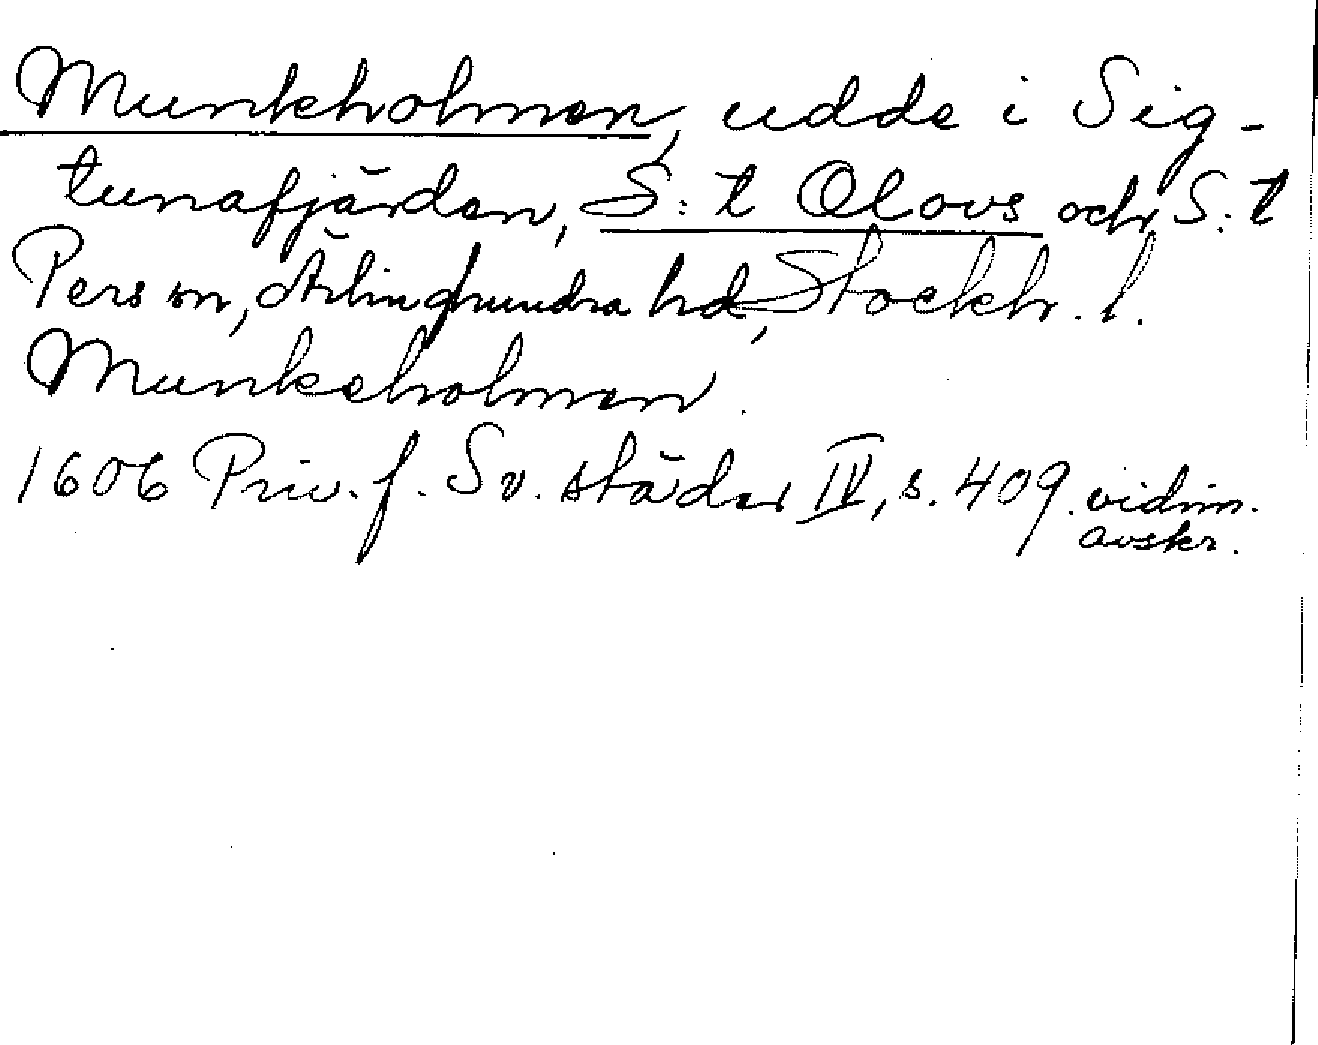 Munkholmen, udde i Sig-
tunafjärden, S:t Olovs och S:t
Pers sn, Ärlinghundra hd, Stockh. l.
Munkeholmen.
1606 Priv. f. Sv. städer IV, s. 409. vidim.
avskr.